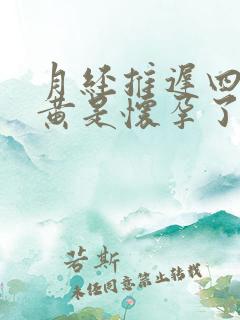 月经推迟四
黄是怀孕了
若斯
未经同意禁止转载